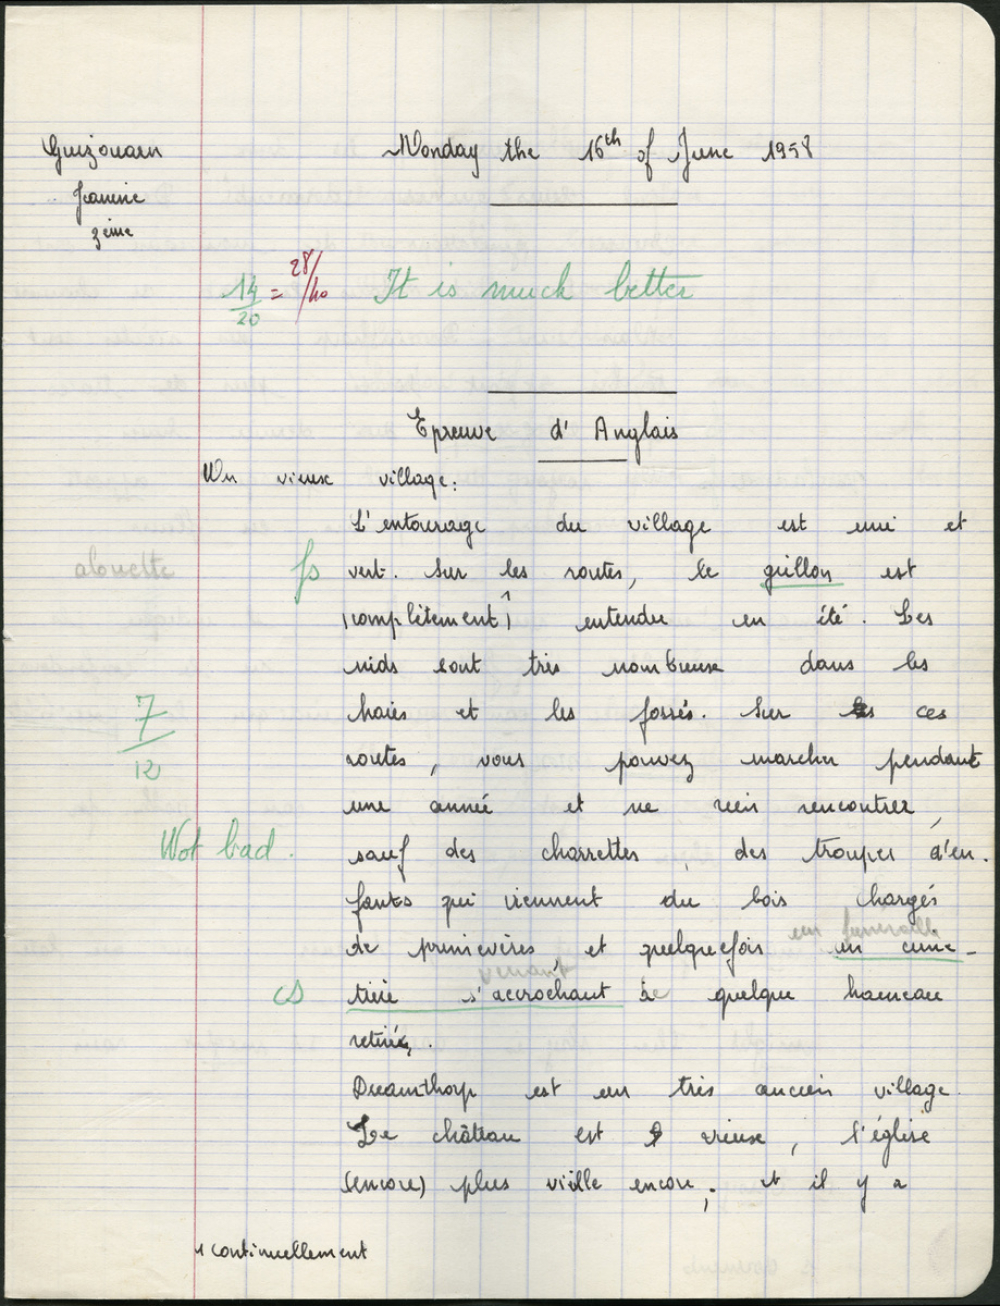 Guézouarn
Jeanine
3ème
Monday the 16th of June 1958
14/20 = 28/40 It is much better
Epreuve d'Anglais
Un vieux village:
L'entourage du village est uni et
alouette fs vert. Sur les routes, le grillon est
(complètement) entendu en été. Les
nids sont très nombreux dans les
haies et les fossés. Sur les ces
7/12
routes, vous pouvez marcher pendant
une année et ne rien rencontrer,
Not bad.
sauf des charrettes, des troupes d'en-
fants qui viennent du bois chargés
un funéraille
de primevères, et quelquefois un cime-
venant
cs tière s'accrochant de quelque hameau
retiré.
Dreamthorp est un très ancien village.
Le château est vieux, l'église
(encore) plus vieille encore; et il y a
continuellement